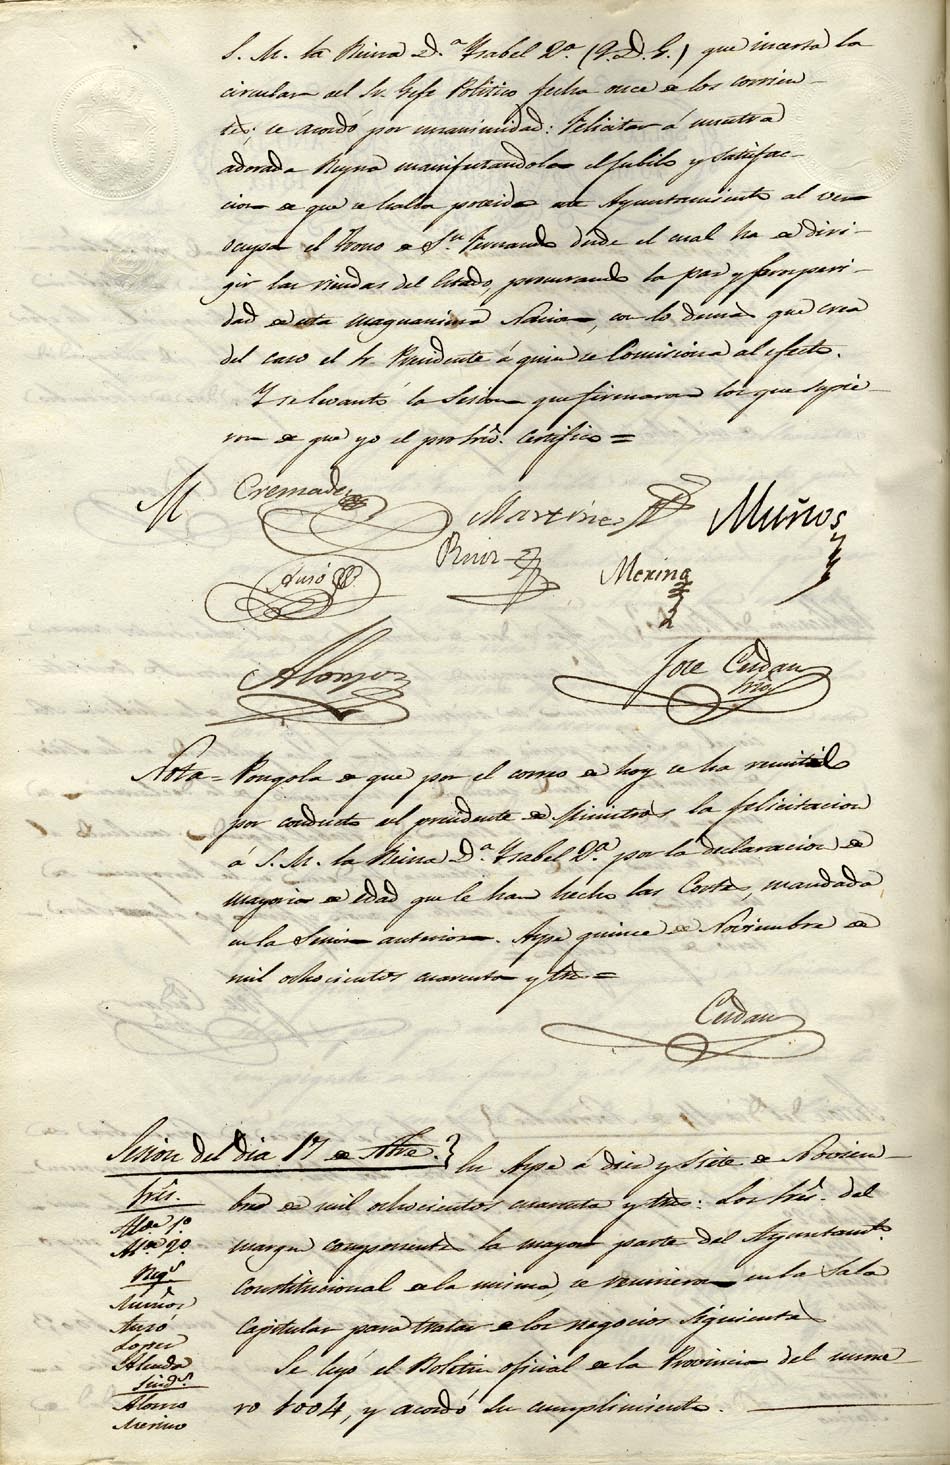 S. M. la Reina D.ª Ysabel 2.ª (Q.D.G.) que incerta la
circular del Sr. Gefe Politico fecha once de los corrien-
tes; se acordó por unanimidad: Felicitar á nuestra
adorada Reyna manifestandola el jubilo y satisfac-
cion de que se halla poseido este Ayuntamiento al ver
ocupa el Trono de Sn. Fernando desde el cual ha de diri-
gir las riendas del Estado, procurando la paz y prosperi-
dad de esta magnanima Nacion, con lo demas que crea
del caso el Sr. Presidente á quien se Comisiona al efecto.
Y se levantó la Sesion que firmaron los que supie-
ron de que yo el pro Srio. Certifico =
M Cremades Martinez Muños
Auso Ruiz Merino
Alonso Jose Cerdan
Srio
Nota = Pongola de que por el correo de hoy se ha remitido
por conducto del presidente de Ministros la felicitacion
á S. M. la Reina D.ª Ysabel 2.ª por la declaracion de
mayoria de edad que le han hecho las Cortes, mandada
en la Sesion anterior. Aspe quince de Noviembre de
mil ochocientos cuarenta y tres =
Cerdan
Sesion del dia 17 de Nbre.} En Aspe á diez y siete de Noviem-
bre de mil ochocientos cuarenta y tres: Los Sres. del
margen componentes la mayor parte del Ayuntamto.
Constitucional de la misma, se reunieron en la Sala
Capitular para tratar de los negocios siguientes
Se leyó el Boletin oficial de la Provincia del nume-
ro 1004, y acordó su cumplimiento.
Sres.
Alde 1º
Alde 2º
Regs
Muños
Auso
Lopez
Almda
Sinds
Alonso
Merino